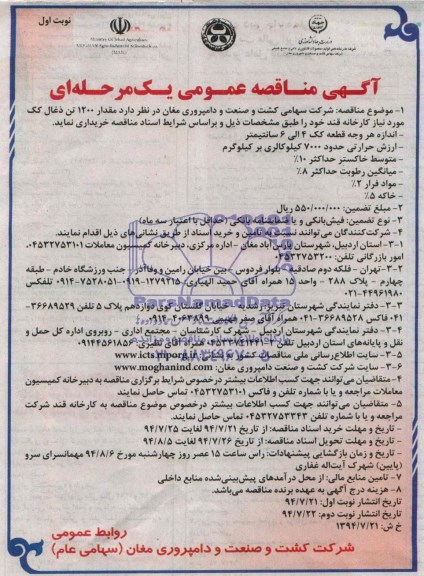 نوبت اول
آگهی مناقصه عمومی یک‌مرحله‌ای
۱- موضوع مناقصه: شرکت سهامی کشت و صنعت و دامپروری مغان در نظر دارد مقدار ۱۲۰۰ تن ذغال کک
مورد نیاز کارخانه قند خود را طبق مشخصات ذیل و براساس شرایط اسناد مناقصه خریداری نماید.
- اندازه هر وجه قطعه کک ۴ الی ۶ سانتیمتر
- ارزش حرارتی حدود ۷۰۰۰ کیلوکالری بر کیلوگرم
- متوسط خاکستر حداکثر ۱۰٪
- میانگین رطوبت حداکثر ۸٪
- مواد فرار ۲٪
- خاکه ۵٪
۲- مبلغ تضمین: ۵۵۰/۰۰۰/۰۰۰ ریال
۳- نوع تضمین: فیش بانکی و یا ضمانتنامه بانکی (حداقل با اعتبار سه ماه)
۳- شرکت‌کنندگان می‌توانند نسبت به تامین و خرید اسناد از طریق نشانی‌های ذیل اقدام نمایند.
۳-۱- استان اردبیل، شهرستان پارس‌آباد مغان - اداره مرکزی، دبیرخانه کمیسیون معاملات ۰۴۵۳۲۷۵۳۱۰۱
امور بازرگانی تلفن: ۰۴۵۳۲۷۵۳۲۰۰
۳-۲- تهران - فلکه دوم صادقیه - بلوار فردوس - بین خیابان رامین و وفاآذر - جنب ورزشگاه خادم - طبقه
چهارم - پلاک ۲۸۸ - واحد ۱۵ همراه آقای حمید الهیاری: ۰۹۱۹۰۱۲۷۹۳۱۵-۰۹۱۴۰۷۵۲۸۰۵۱ تلفکس
۰۲۱-۴۴۹۶۱۹۸۰
۳-۳- دفتر نمایندگی شهرستان تبریز: رشدیه - خیابان گلستان کوی دوازدهم پلاک ۵ تلفن ۳۶۶۸۹۵۳۹-
۰۴۱ فاکس ۳۶۶۸۹۵۲۸-۰۴۱ همراه آقای صفر فهیمی ۴۶۳۸۹۹-۰۹۱۴
۳-۴- دفتر نمایندگی شهرستان اردبیل - شهرک کارشناسان - مجتمع اداری - روبروی اداره کل حمل و
نقل و پایانه‌های استان اردبیل تلفن همراه آقای نظیری: ۰۹۱۴۴۵۶۱۸۵۶
۳-۵- سایت اطلاع‌رسانی ملی مناقصات کشور www.icts.mporg.ir
۳-۶- سایت شرکت کشت و صنعت و دامپروری مغان: www.moghanind.com
۴- متقاضیان می‌توانند جهت کسب اطلاعات بیشتر درخصوص شرایط برگزاری مناقصه به دبیرخانه کمیسیون
معاملات مراجعه و یا با شماره تلفن و فاکس ۰۴۵۳۲۷۵۳۱۰۱ تماس حاصل نمایند
۵- متقاضیان می‌توانند جهت کسب اطلاعات بیشتر درخصوص موضوع مناقصه به کارخانه قند شرکت
مراجعه و یا با شماره تلفن ۰۴۵۳۲۷۵۳۳۴۳ تماس حاصل نمایند.
- تاریخ و مهلت خرید اسناد مناقصه: از تاریخ ۹۴/۷/۲۱ لغایت ۹۴/۷/۲۵
- تاریخ و مهلت تحویل اسناد مناقصه: از تاریخ ۹۴/۷/۲۶ لغایت ۹۴/۸/۵
- تاریخ و زمان بازگشایی پیشنهادات: راس ساعت ۱۵ عصر روز چهارشنبه مورخ ۹۴/۸/۶ مهمانسرای سرو
(پایین) شهرک آیت‌اله غفاری
۷- تامین منابع مالی: از محل درآمدهای پیش‌بینی‌شده منابع داخلی
۸- هزینه درج آگهی به عهده برنده مناقصه می‌باشد.
تاریخ انتشار نوبت اول: ۹۴/۷/۲۱
تاریخ انتشار نوبت دوم: ۹۴/۷/۲۲
خ ش: ۱۳۹۴/۷/۲۱
روابط عمومی
شرکت کشت و صنعت و دامپروری مغان (سهامی عام)